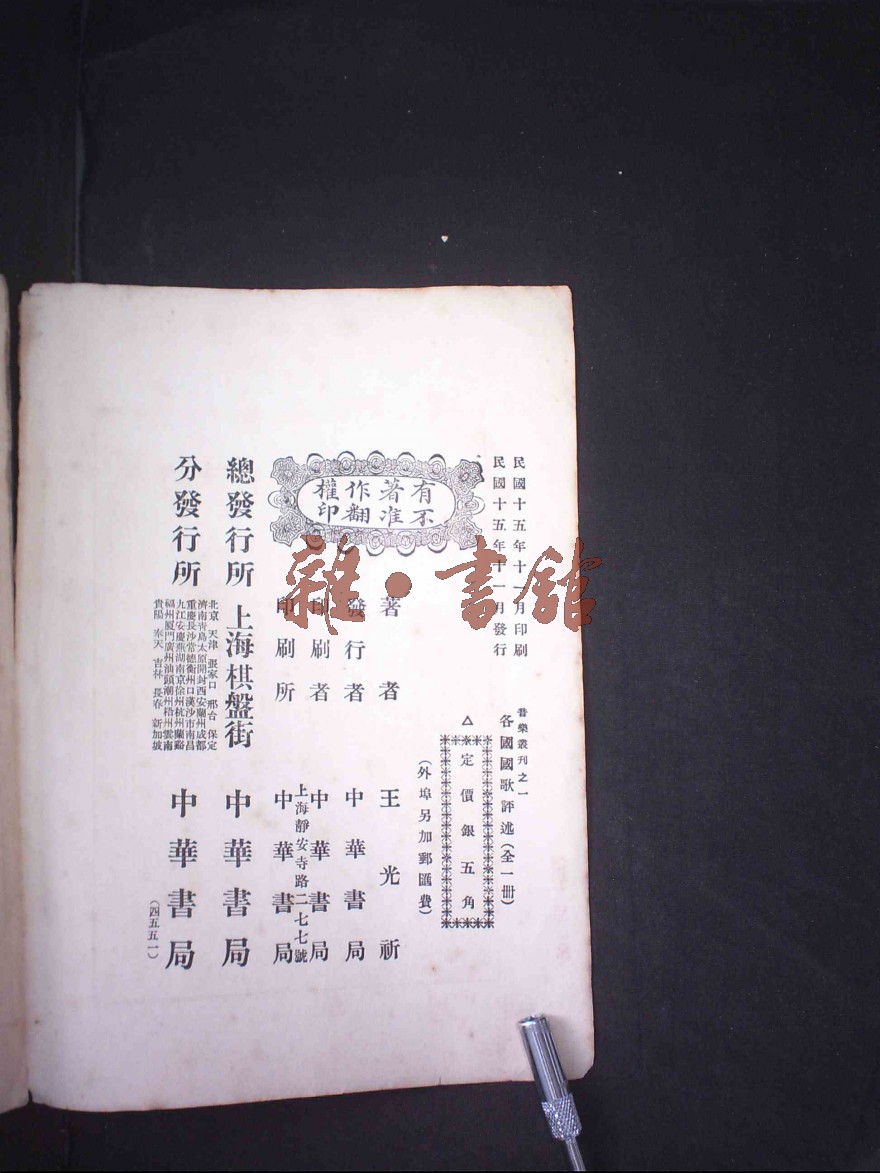 民國十五年十一月印刷
民國十五年十一月發行
音樂叢刊之一
各國國歌評述（全一冊）
△定價銀五角
（外埠另加郵匯費）
有著作權
不准翻印
著者 王光祈
發行者 中華書局
印刷者 中華書局
上海靜安寺路二七七號
印刷所 中華書局
總發行所 上海棋盤街 中華書局
分發行所
北京 天津 張家口 邢台 保定
濟南青島太原開封西安蘭州成都
重慶長沙常德衡州漢口沙市南昌
九江安慶蕪湖南京徐州杭州蘭谿
福州厦門廣州汕頭潮州梧州雲南
貴陽 奉天 吉林 長春 新加坡
中華書局
（四五五一）
雜·書館